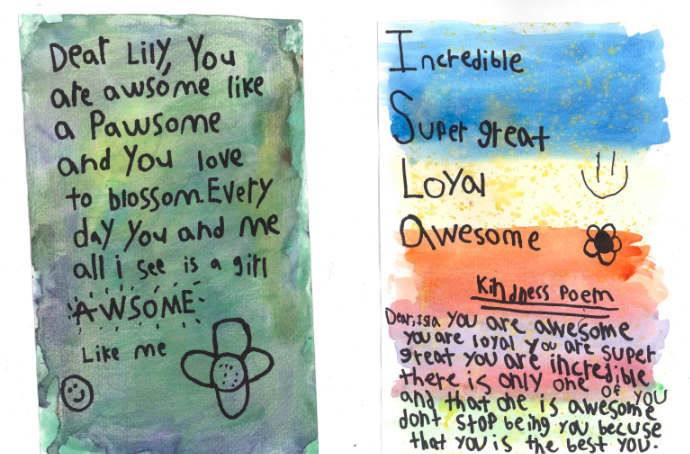 Dear Lily, You
are awsome like
a Pawsome
and You love
to blossom. Every
day You and me
all i see is a girl
AWSOME
Like me
Incredible
Super great
Loyal
Awesome
Kindness Poem
Dear, isla You are awesome
you are loyal you are super
great you are incredible
there is only one of you
and that one is awesome
dont stop being you becuse
that you is the best you.